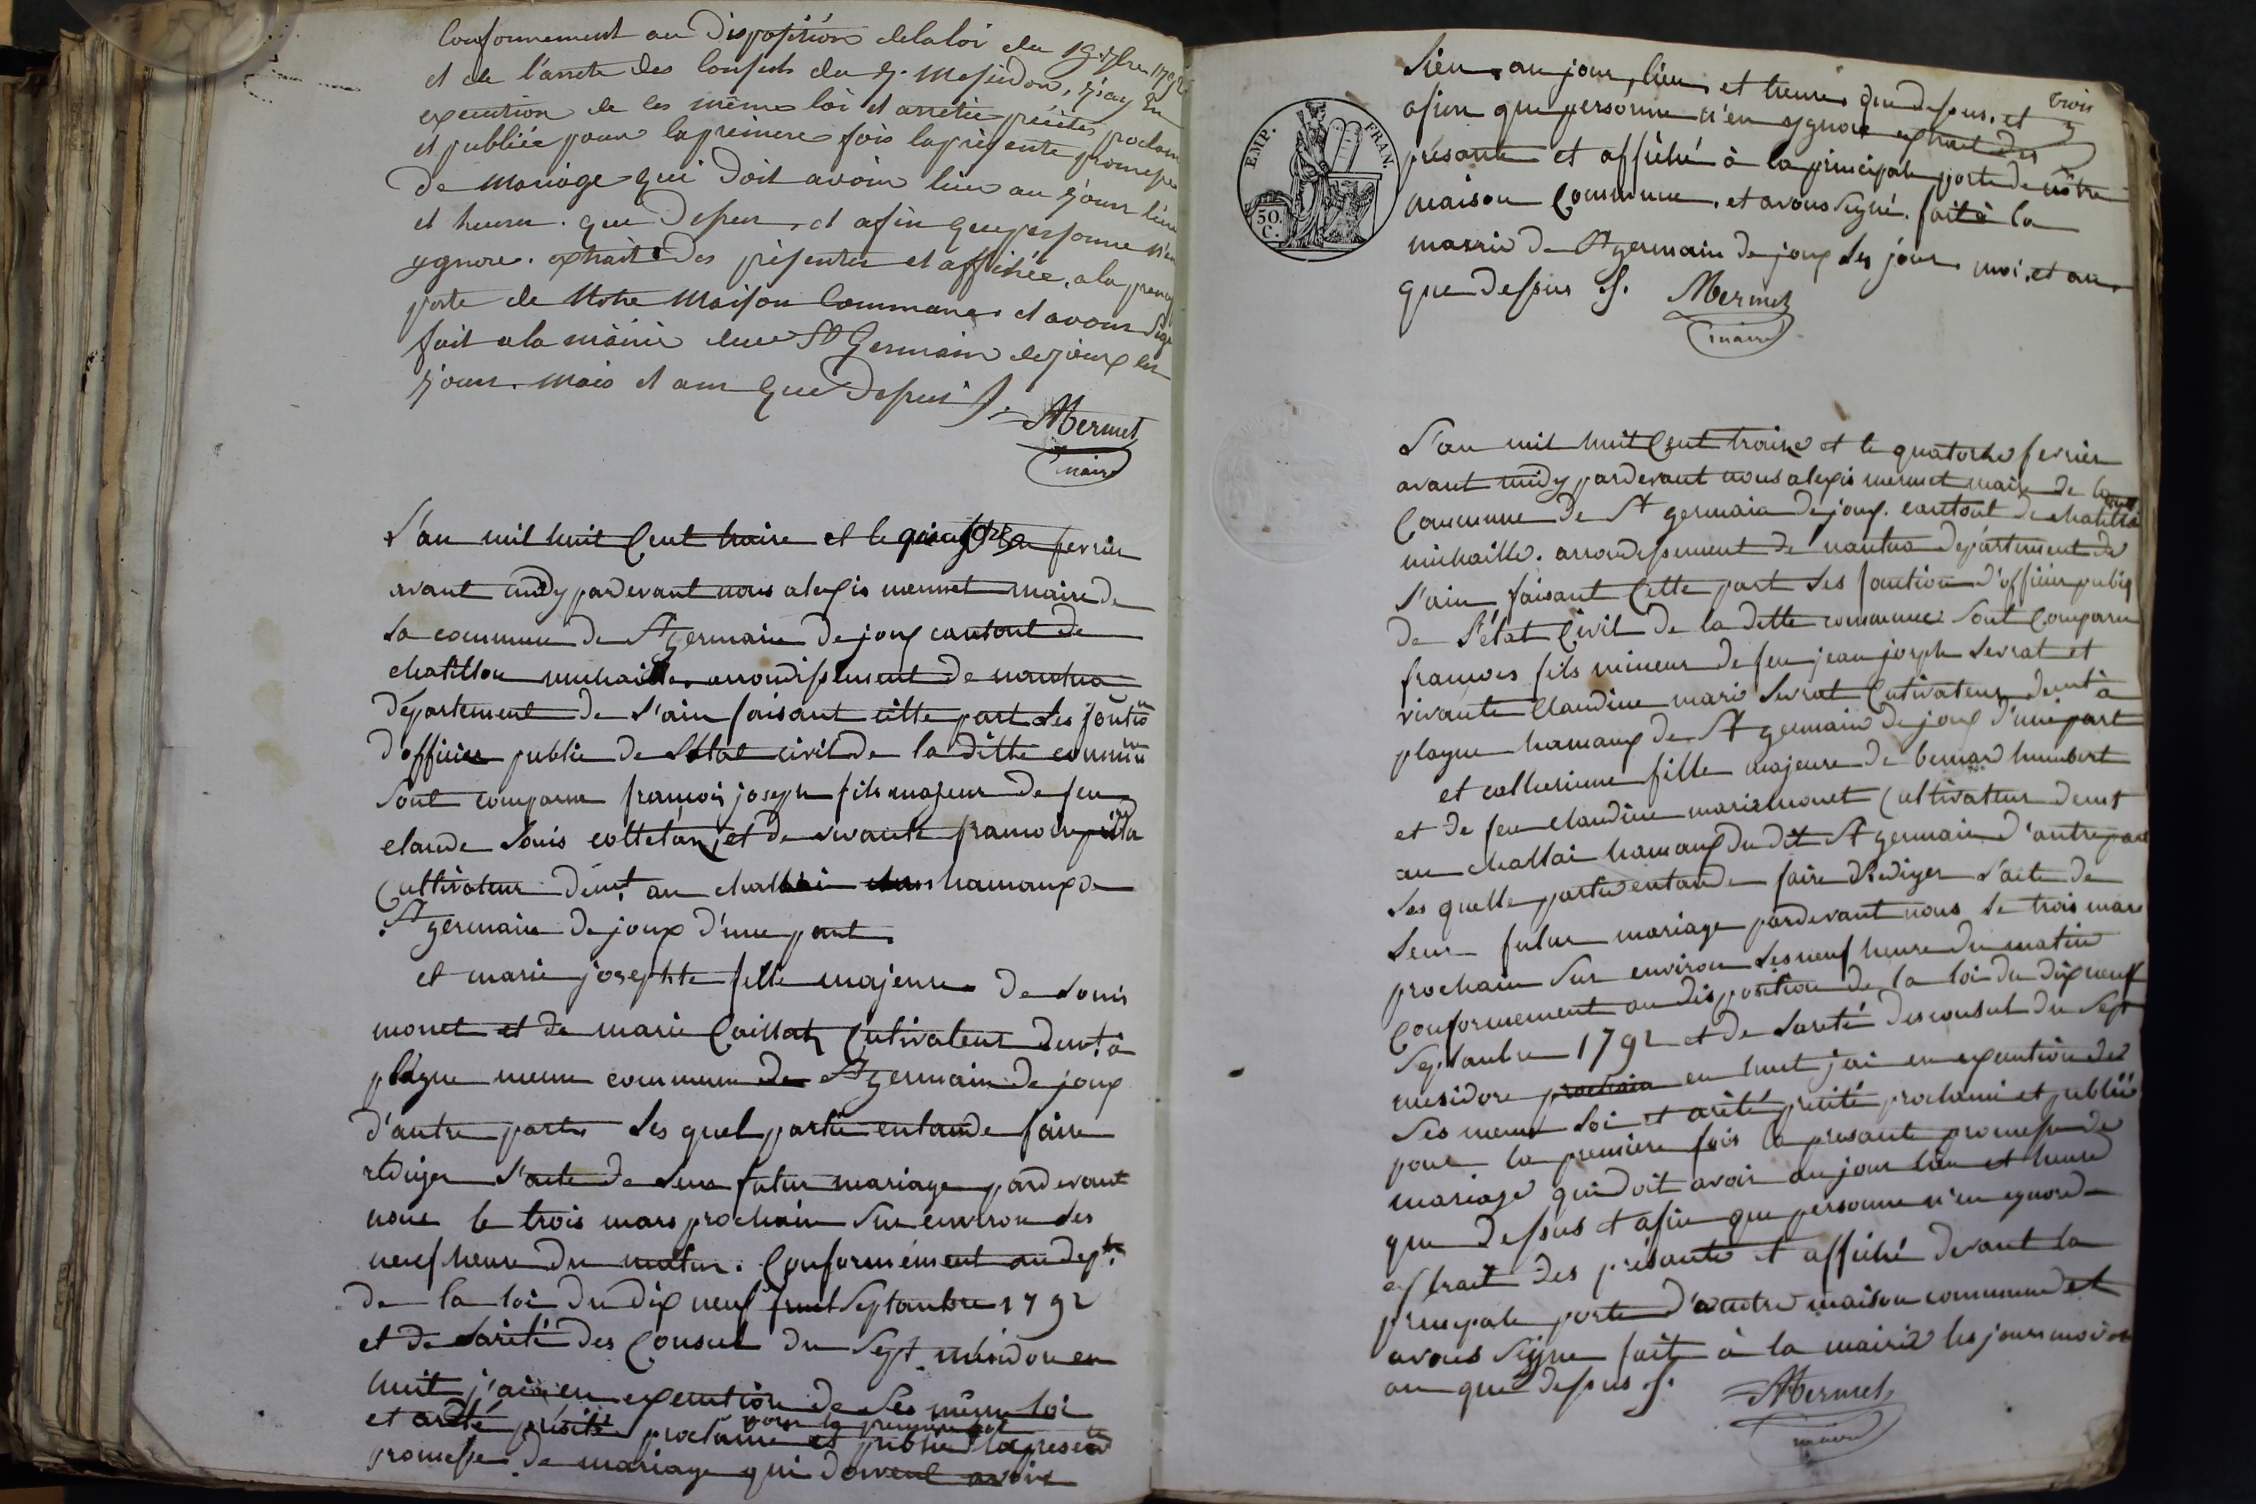 Conformement au Disposition delaloi du 19 7bre 1792
et de l'arrete des Consuls du 7. Messidor, j'ay En
execution de ces même loi et arretée précités proclam
et publiée pour la premiere fois la présente promesse
de Mariage qui Doit avoir lieu au jour lieu
et heure. que Dessus, et afin que personne n'en
ygnore. extrait Des présentes et affichée, a la
porte de Notre Maison Commune. et avons Signé
fait a la mairie de St Germain de joux les
jour. mois et an que Dessus
AMermet
maire
L'an mil huit Cent traize et le quatorze fevrier
avant midy pardevant nous alexis mermet maire de
la commune de St germain de joux cantont de
chatillon michaille. arrondissement de nantua
département de l'ain faisant cette part les fontion
d'officier public de l'état civil de la ditte commune
sont comparu françois joseph fils majeur de feu
claude louis colletaz et de vivante françoise
Cultivateur demt au challai hamaux de
St germain de joux d'une part.
et marie josephte fille majeure de louis
monet et de marie Caillat Cultivateur demt. à
plagne meme commune de St germain de joux
d'autre part. les quel partie entande faire
rediger l'acte de leur futur mariage pardevant
nous le trois mars prochain sur environ les
neuf heure du matin. Conformément au
de la loi du dix neuf Septanbre 1792
et de l'arité des Consul du Sept mésidor en
huit j'ai en execution de les même loi
et arité présité proclamé pour la premiere fois et publié la presente
promesse de mariage qui doivent avoir
trois
lieu, au jour, lieu et heure que dessus. et
afin que personne n'en ygnore extrait des
présante et affiché à la principale porte de nôtre
maison Commune. et avons signé. fait à la
mairie de St germain de joux les jour, moi, et an
que dessus
AMermet
maire
EMP. FRAN.
50. C.
L'an mil huit Cent traize et le quatorze fevrier
avant midy pardevant nous alexis mermet maire de la
Commune de St germain de joux. cantont de chatillon
michaille. arrondissement de nantua département de
l'ain faisant Cette part les fonction d'officier public
de l'état Civil de la ditte commune. sont Comparu
françois fils mineur de feu jean joseph levrat et
vivante Claudine marie levrat Cultivateur demt à
plagne hamaux de St germain de joux d'une part
et catherinne fille majeure de bernard humbert
et de feu claudine marie monet Cultivateur demt
au challai hamaux du dit St germain d'autre part
les quelle partie entande faire Rediger l'acte de
leur futur mariage pardevant nous le trois mars
prochain sur environ les neuf heure du matin
Conformement au disposition de la loi du dix neuf
Septanbre 1792 et de l'areté des consul du Sept
mesidore prochain en huit j'ai en execution des
les meme loi et arité précité proclamé et publié
pour la premiere fois la presante promesse de
mariage qui doit avoir au jour lieu et heure
que dessus et afin que personne n'en ygnore
extrait des présante et affiché devant la
principale porte d'notre maison commune et
avons signé fait à la mairie les jours moi et
an que dessus
AMermet
maire